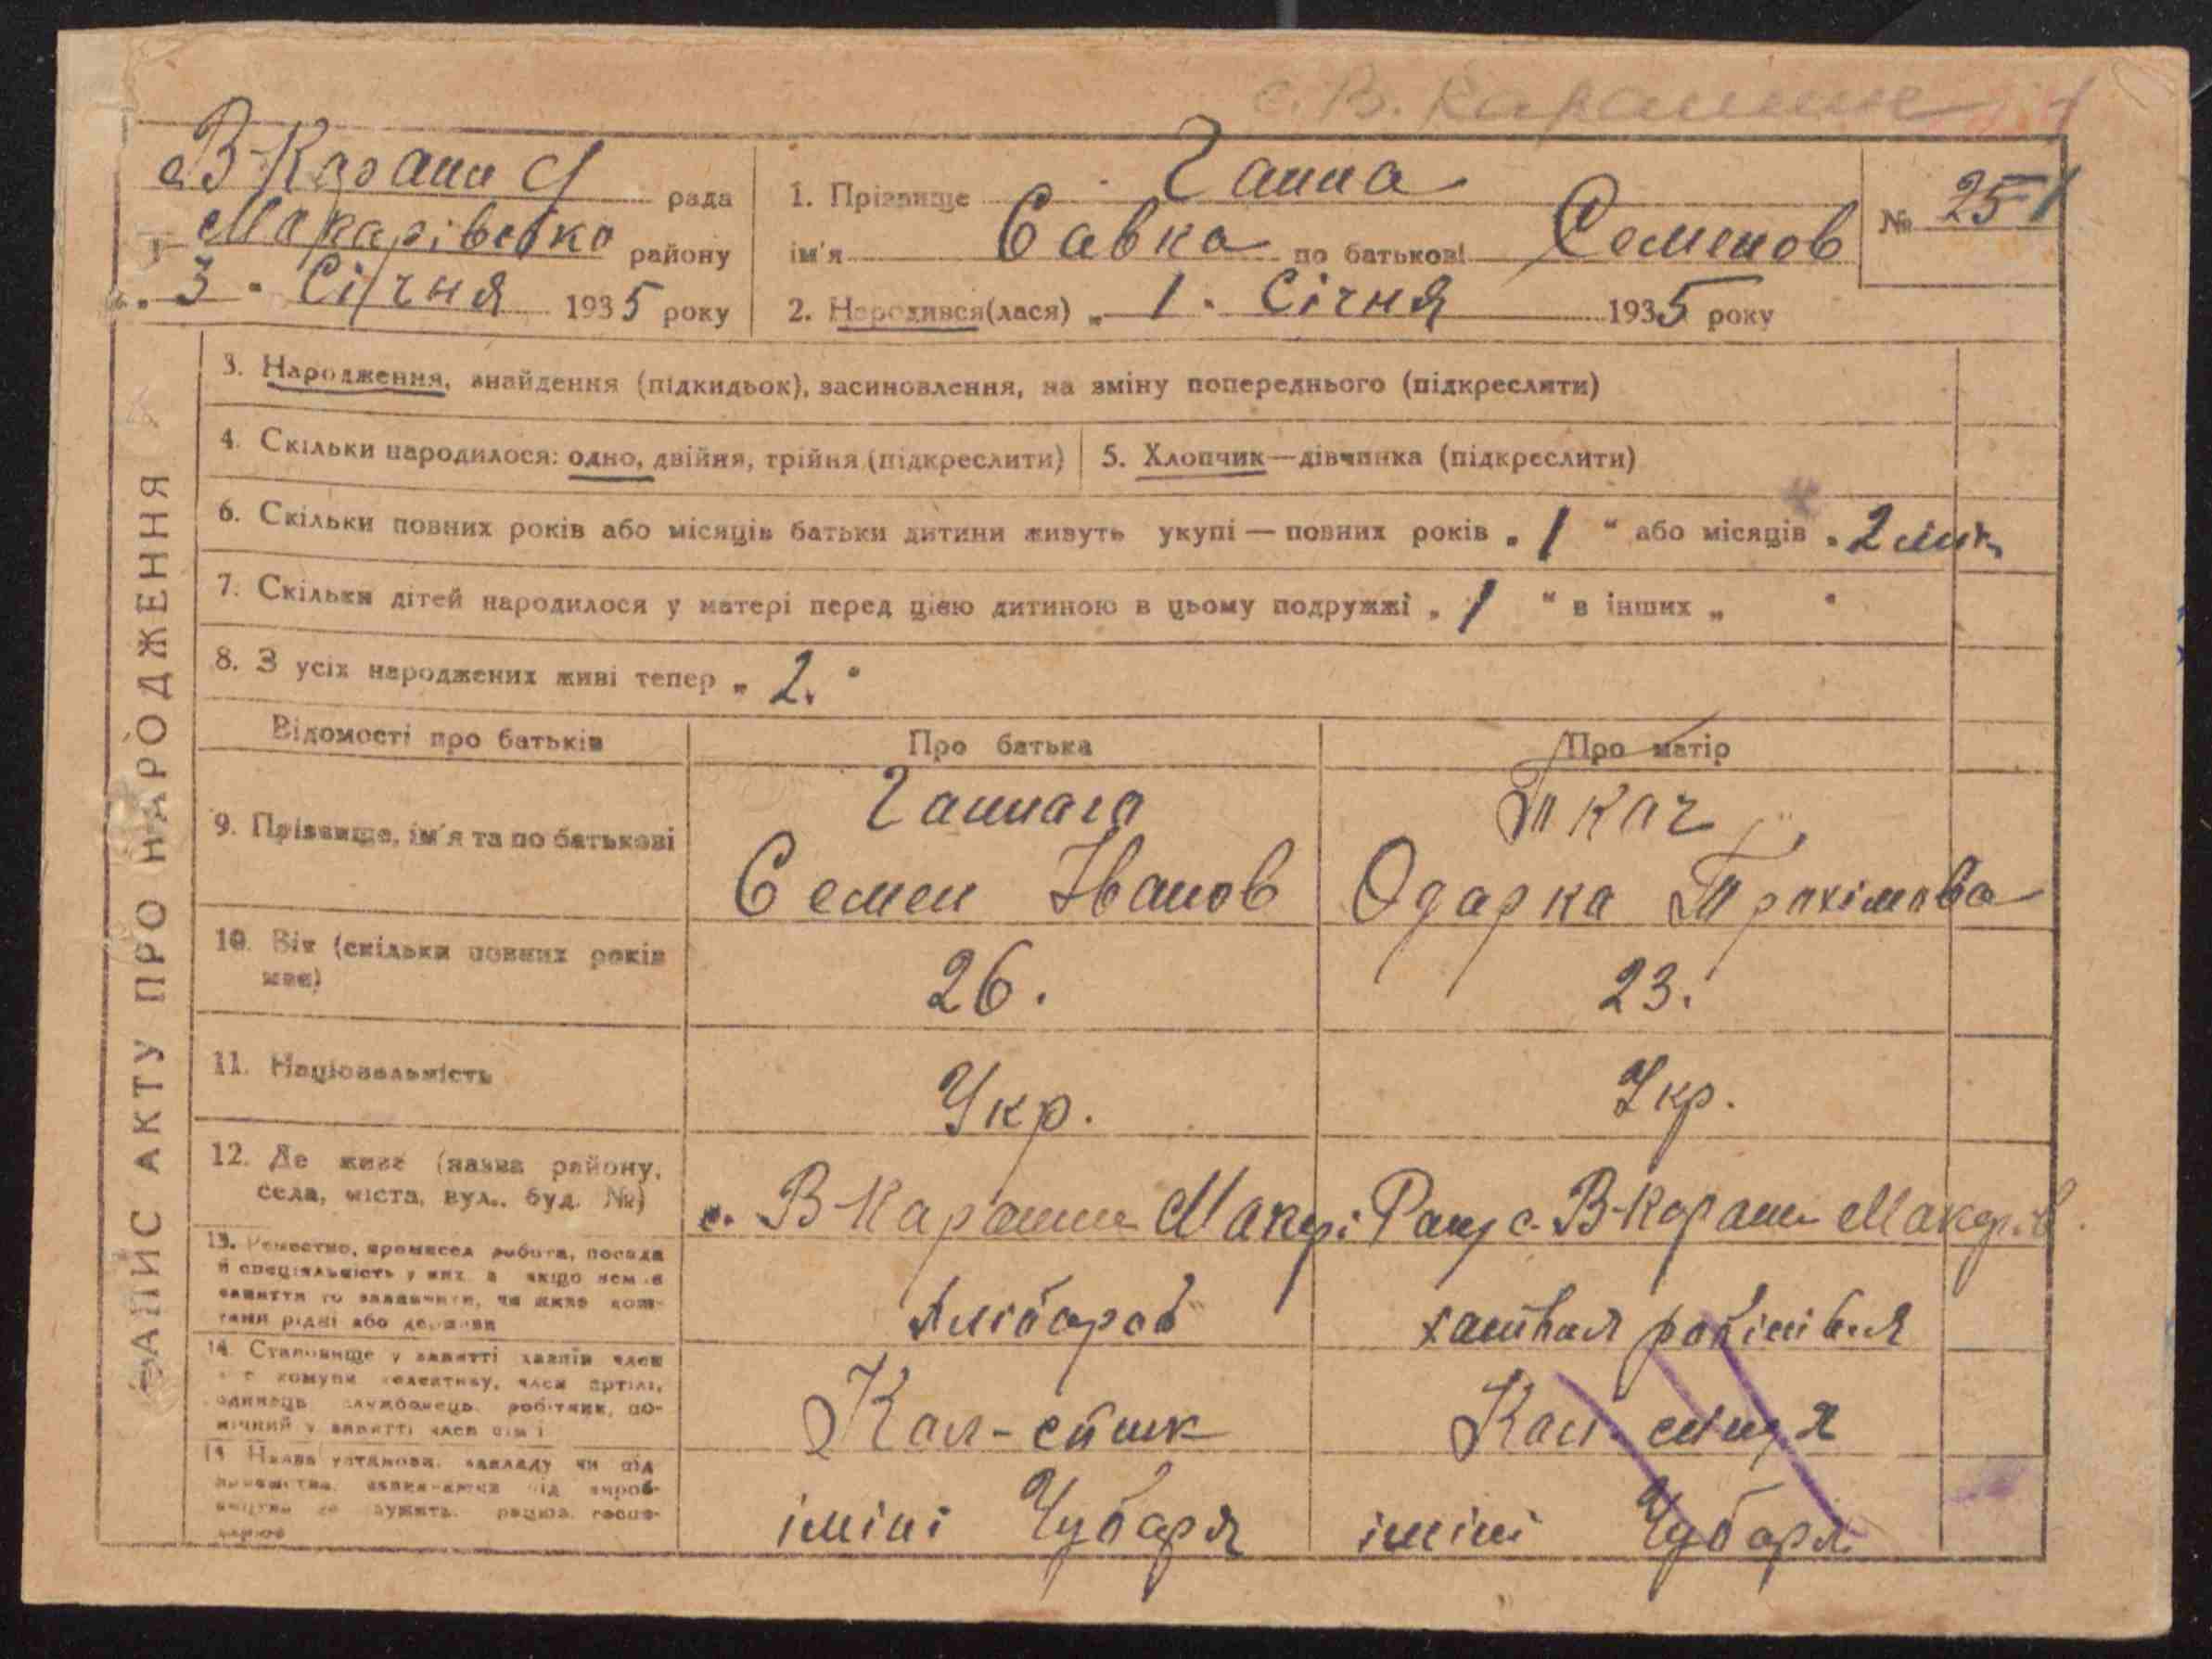 с. В. Карашин
с В-Караш С/ рада
Макарівсько району
" 3 " Січня 1935 року
1. Прізвище Ганна
ім'я Савка по батькові Семенов
№ 251
2. Народився(лася) " 1 " Січня 1935 року
ЗАПИС АКТУ ПРО НАРОДЖЕННЯ
3. Народження, знайдення (підкидьок), засиновлення, на зміну попереднього (підкреслити)
4. Скільки народилося: одно, двійня, трійня (підкреслити)
5. Хлопчик—дівчинка (підкреслити)
6. Скільки повних років або місяців батьки дитини живуть укупі — повних років " 1 " або місяців " 2 міс
7. Скільки дітей народилося у матері перед цією дитиною в цьому подружжі " 1 " в інших " "
8. З усіх народжених живі тепер " 2. "
Відомості про батьків
Про батька
Про матір
9. Прізвище, ім'я та по батькові
Ганнага
Семен Іванов
Ткач
Одарка Трохімова
10. Вік (скільки повних років має)
26.
23.
11. Національність
Укр.
Укр.
12. Де живе (назва району,
села, міста, вул., буд. №)
с. В-Карашин Макарі Рану
с. В-Караши Макарів.
13. Ремество, промисел робота, посада
й спеціальність у них а якщо нема
заняття то зазначити, чи живе кош-
тами рідні або держави
хатняя робітівля
14. Становище у занятті хазяїн член
комуни колективу, член артілі,
одинець службовець робітник, по-
мічний у занятті член сім'ї
Кол-спник
15. Назва установи, закладу чи під
імені Чубаря
імені Чубаря